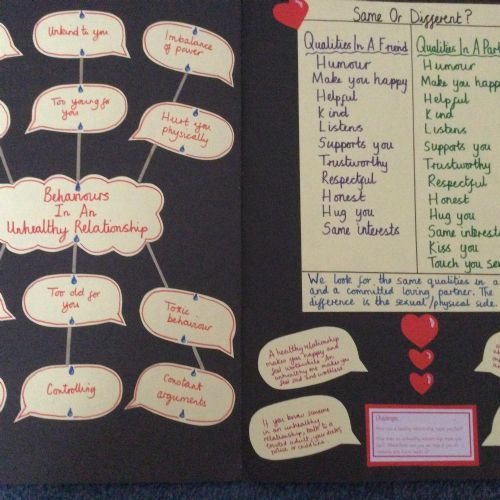 Unkind to you
Imbalance
of power
Too young for
you
Hurt you
physically
Behaviours
In An
Unhealthy Relationship
Too old for
you
Toxic
behaviour
Controlling
Constant
arguments
Same Or Different?
Qualities In A Friend
Humour
Make you happy
Helpful
Kind
Listens
Supports you
Trustworthy
Respectful
Honest
Hug you
Same interests
Qualities In A Part
Humour
Make you happy
Helpful
Kind
Listens
Supports you
Trustworthy
Respectful
Honest
Hug you
Same interests
Kiss you
Touch you se
We look for the same qualities in a
and a committed loving partner. The
difference is the sexual/physical side.
A healthy relationship
makes you happy and
feel worthwhile. An
unhealthy one makes you
feel sad and worthless
If you know someone
in an unhealthy
relationship, talk to a
trusted adult, your doctor,
police or childline.